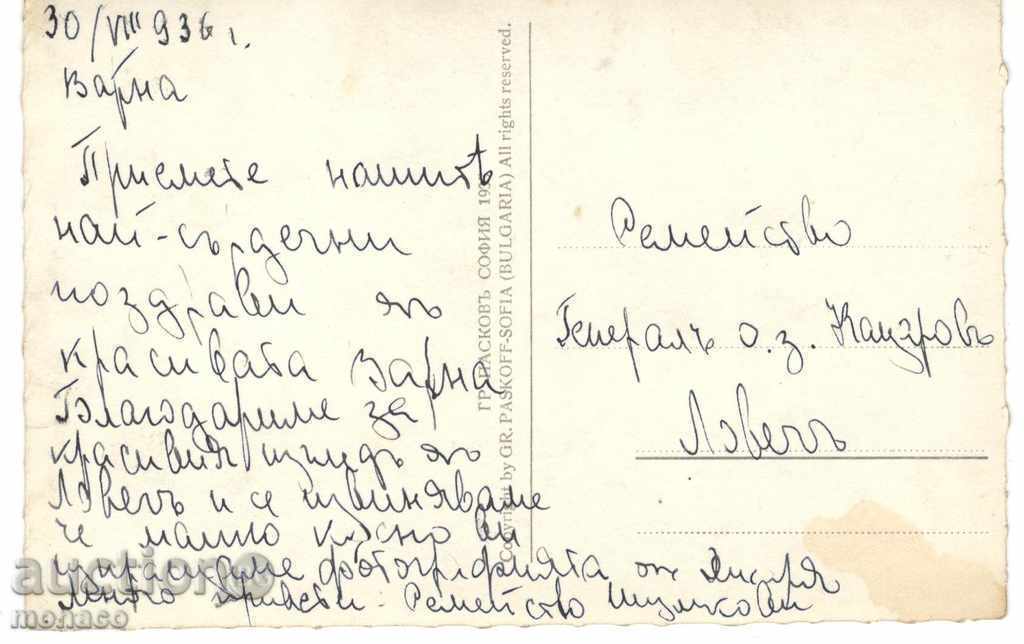 30/VIII 936 г.
Варна
Приемете нашитѣ
най-сърдечни
поздрави
красивата Варна
Благодариме за
красивия изгледъ
Ловечъ и се извиняваме
че малко късно ви
изпращаме фотографията от
Семейство
ГР. ПАСКОВЪ СОФИЯ
Copyright by GR. PASKOFF-SOFIA (BULGARIA) All rights reserved.
Семейство
Генералъ о.з.
Ловечъ
auction
monaco